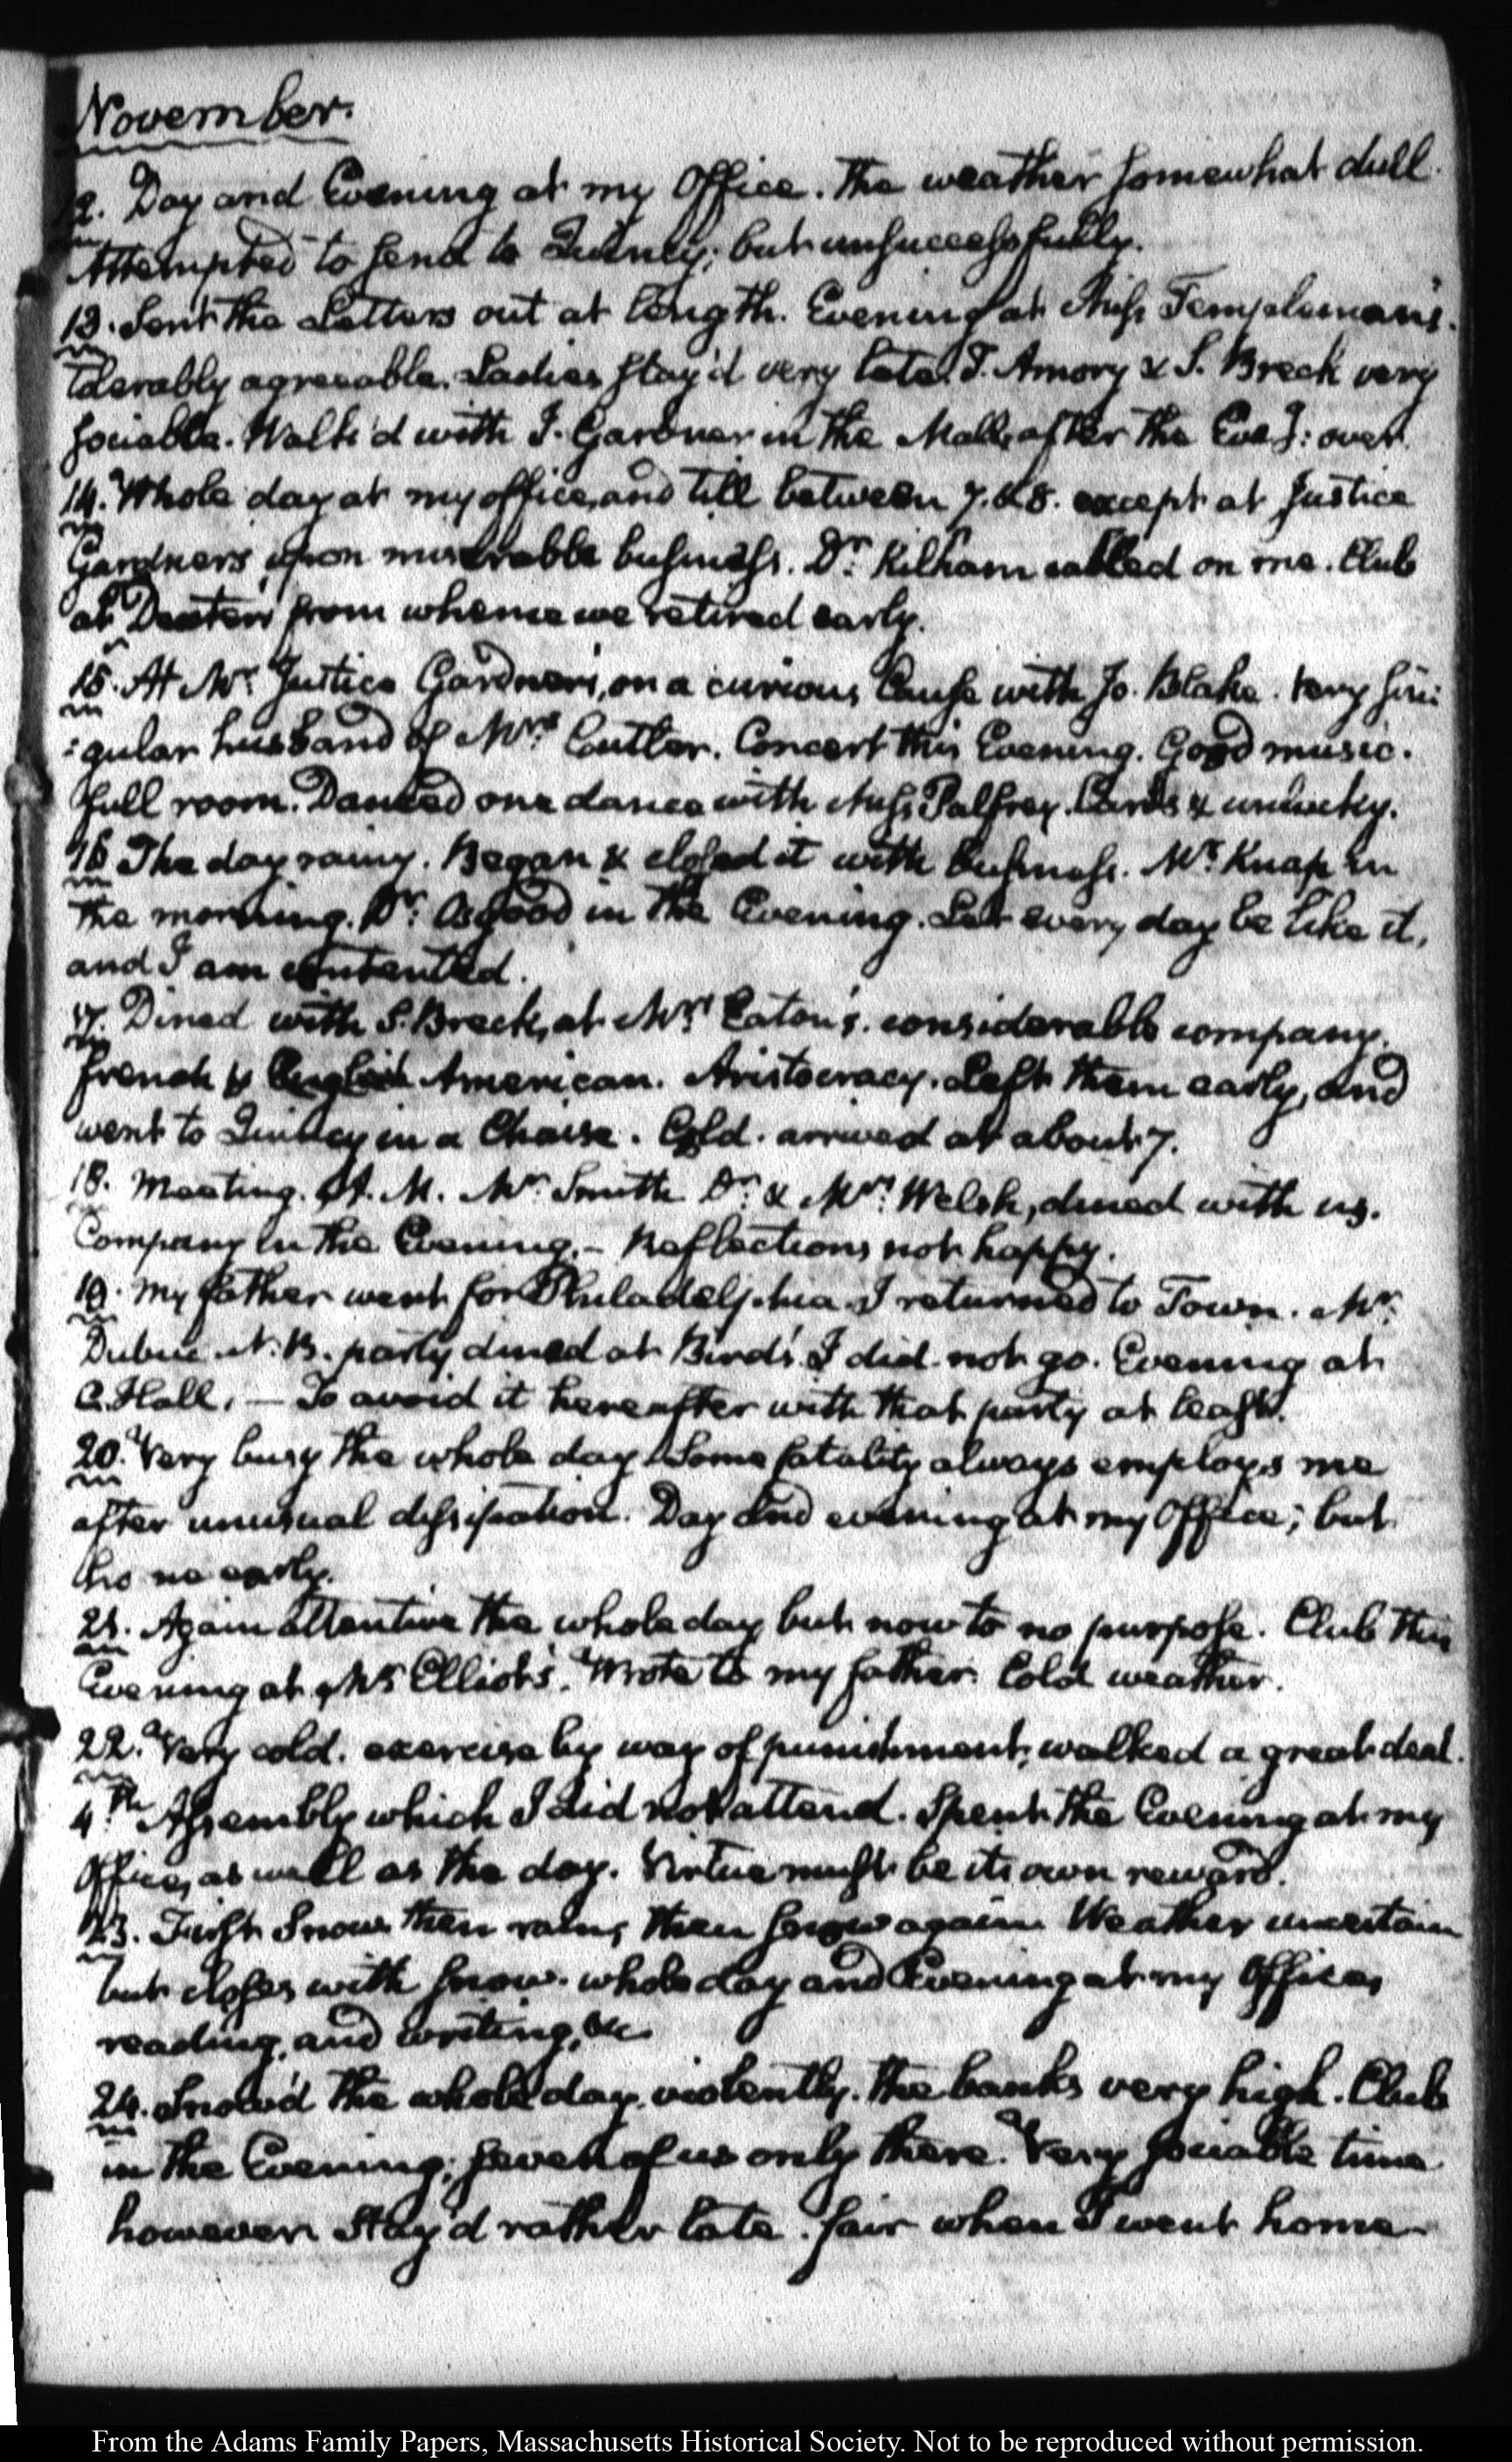 November.
12. Day and Evening at my Office. The weather somewhat dull.
Attempted to send to Quincy; but unsuccessfully.
13. Sent the Letters out at length. Evening at Miss Templeman's.
tolerably agreeable. Ladies stay'd very late. T. Amory & S. Breck very
sociable. Walk'd with J. Gardner in the Mall, after the Eve.g: over.
14. Whole day at my office, and till between 7. & 8. except at Justice
Gardners upon miserable business. Dr. Kilham called on me. Club
at Dexters from whence we retired early.
15. At Mr. Justice Gardner's, on a curious Cause with Jo. Blake. Very sin:
:gular husband of Mrs. Cutler. Concert this Evening. Good music.
full room. Danced one dance with Miss Palfrey. Cards & unlucky.
16 The day rainy. Began & closed it with business. Mr. Knap in
the morning. Dr. Osgood in the Evening. Let every day be like it,
and I am contented.
17. Dined with S. Breck, at Mrs. Eaton's. considerable company.
French & English American. Aristocracy. Left them early, and
went to Quincy in a Chaise. Cold. arrived at about 7.
18. Meeting. A. M. Mr. Smith Dr. & Mrs. Welsh, dined with us.
Company in the Evening. – Reflections not happy.
19. My father went for Philadelphia. I returned to Town. Mr.
Dubuc. N. B. party dined at Bird's. I did not go. Evening at
C. Hall, — To avoid it hereafter with that party at least.
20. Very busy the whole day. Some fatality always employs me
after unusual dissipation. Day and evening at my Office; but
no early.
21. Again attentive the whole day but now to no purpose. Club this
Evening at Mr. Elliot's. Wrote to my father. Cold weather.
22. Very cold. exercise by way of punishment, walked a great deal.
4th. Assembly which I did not attend. Spent the Evening at my
Office, as well as the day. Virtue must be its own reward.
23. First Snow then rain, then snow again. Weather uncertain
but closes with snow. whole day and Evening at my Office,
reading, and writing, &c
24. Snow'd the whole day, violently. the banks very high. Club
in the Evening; seven of us only there. Very sociable time
however. Stay'd rather late. fair when I went home.
From the Adams Family Papers, Massachusetts Historical Society. Not to be reproduced without permission.